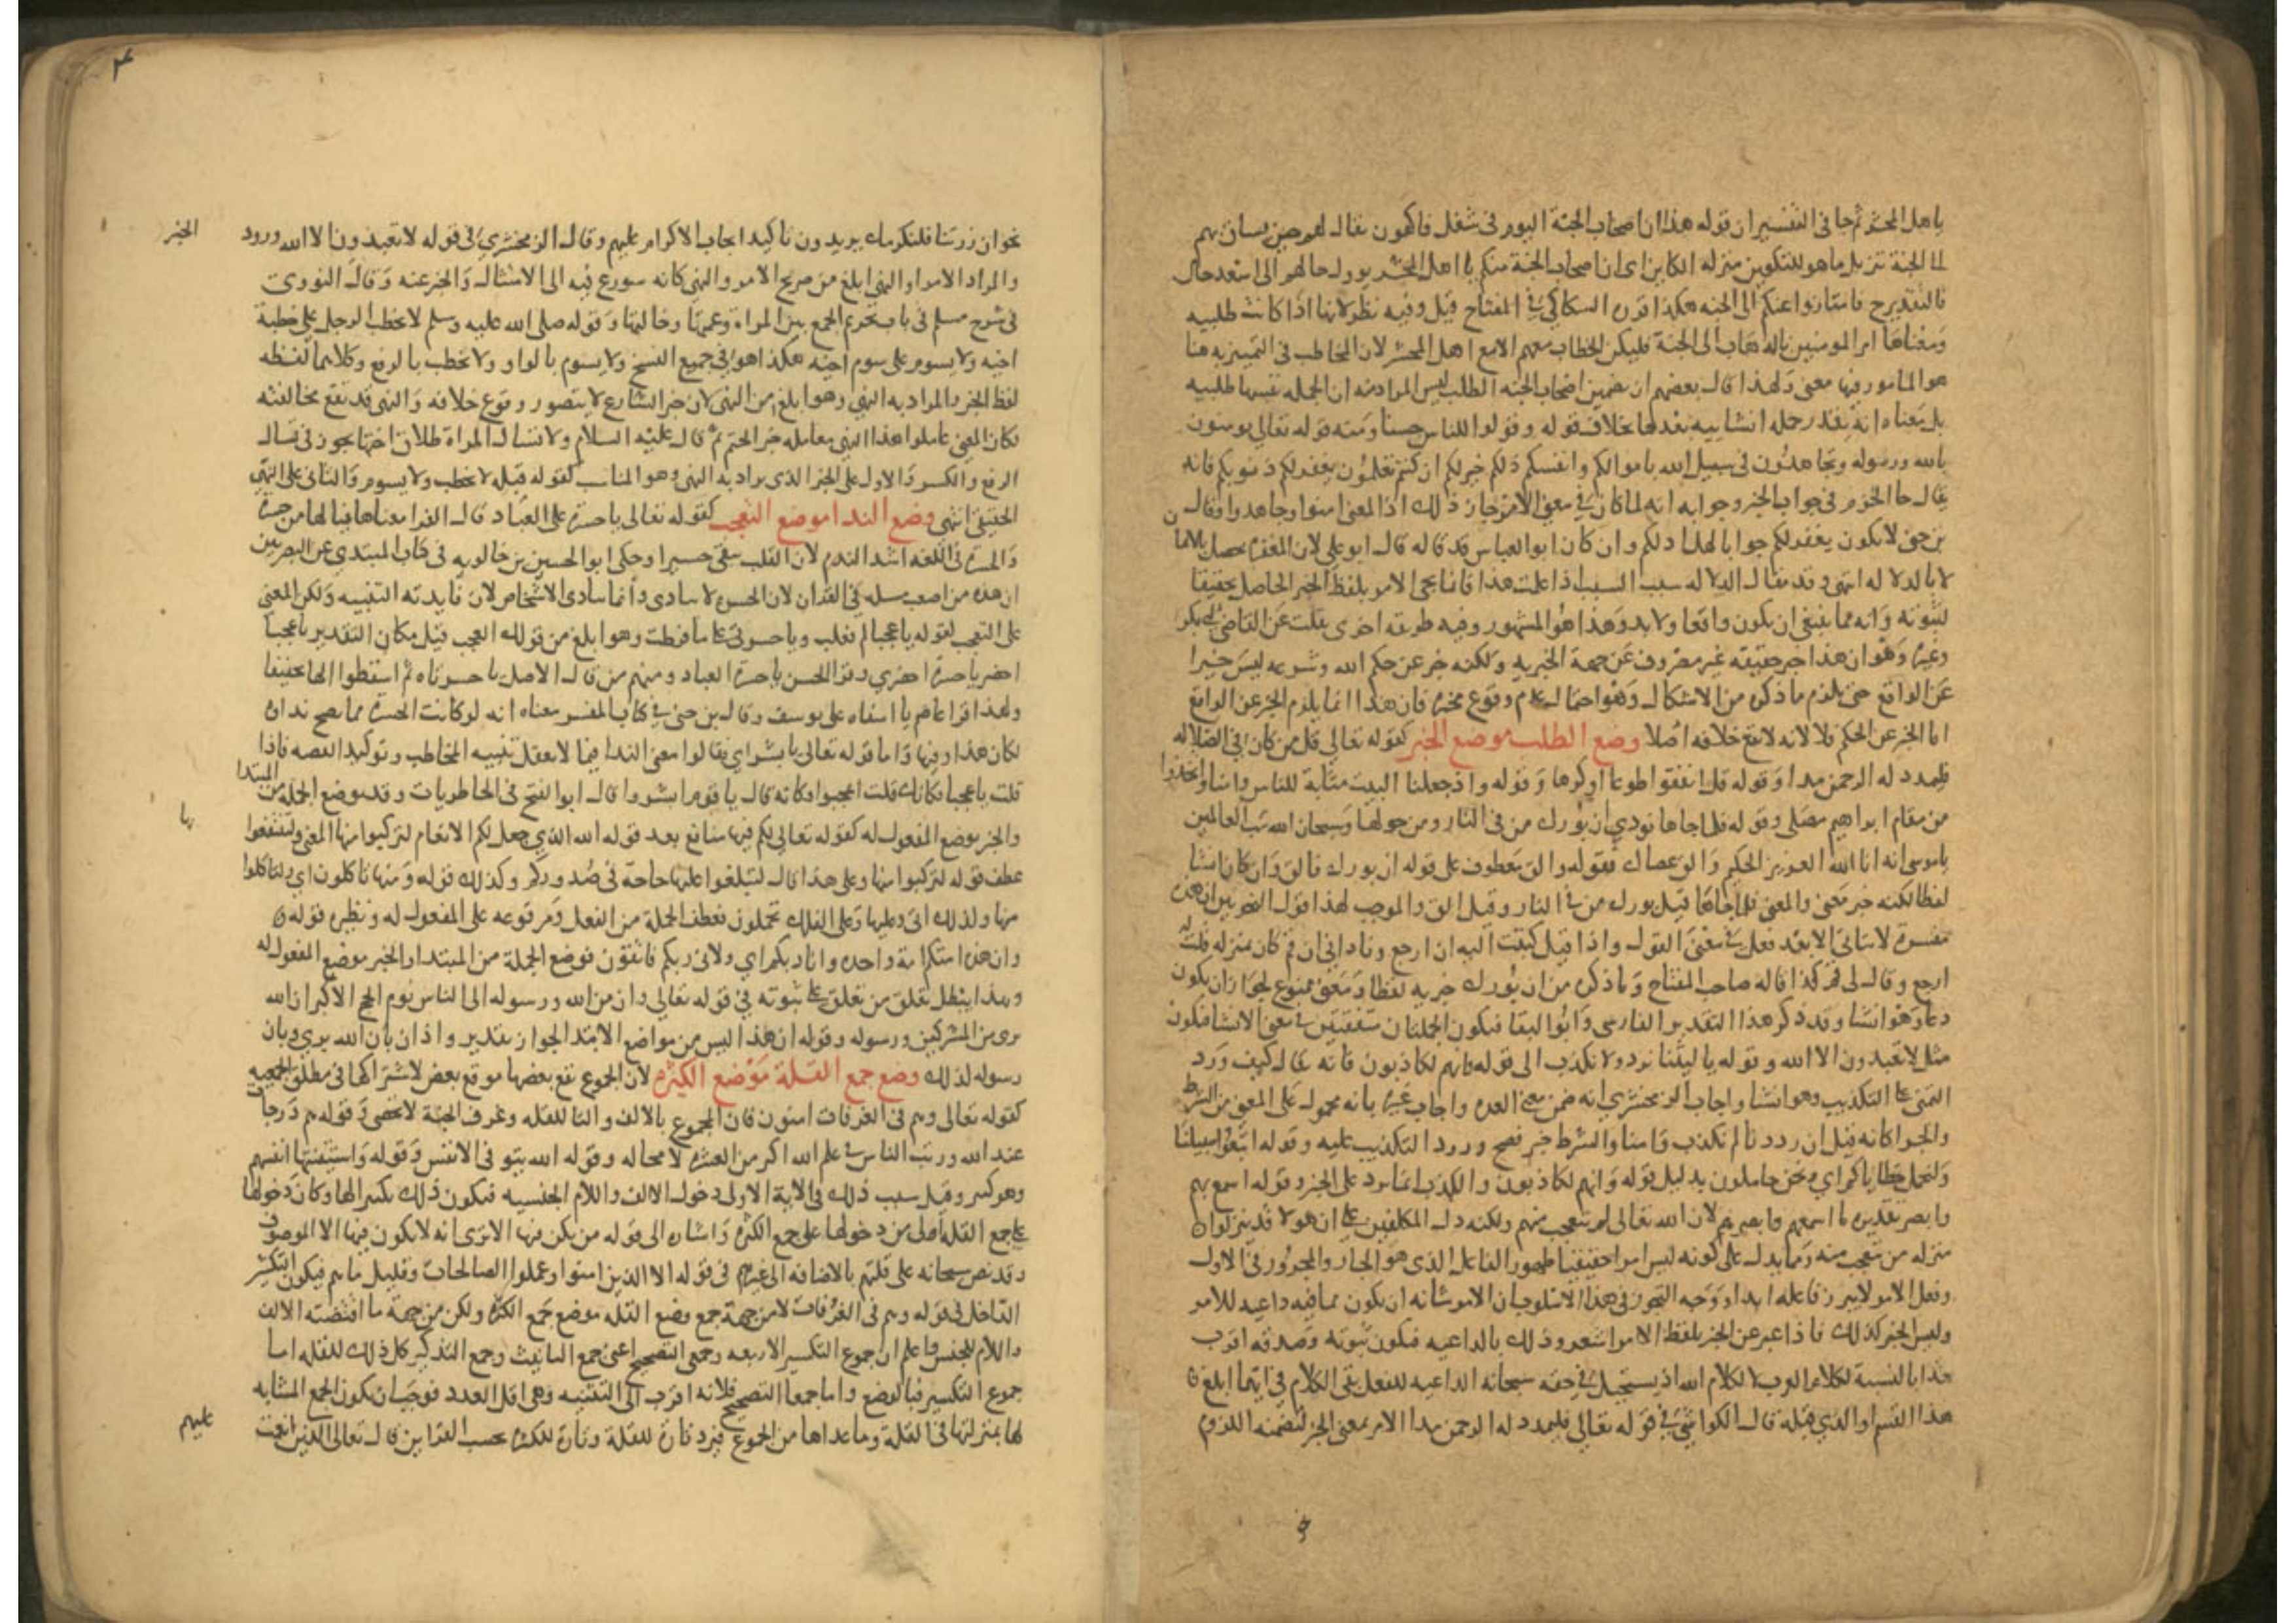 يا هل المحشر ثم جا في التفسير ان قوله هذا ان اصحاب الجنة اليوم في شغل فاكهون يقال لهم حين يساق بهم
الى الجنة تنزيل ما هو للتكوين منزله الكاين اى ان اصحاب الجنة منكم يا اهل المحشر يوول حالهم الى اسعد حال
فالتقدير ح فامتازوا عنكم الى الجنه هكذا قرره السكاكي في المفتاح قيل وفيه نظر لانها اذا كانت طلبيه
ومعناها امر المومنين بالذهاب الى الجنة فليكن الخطاب معهم لا مع اهل المحشر لان المخاطب في التمييز به هنا
هو المامور فيها معنى ولهذا قال بعضهم ان تضمين اصحاب الجنه الطلب ليس المراد منه ان الجمله نفسها طلبيه
بل معناه انه يقدر جمله انشاييه بعدها بخلاف قوله وقولوا للناس حسنا ومنه قوله تعالى يومنون
بالله ورسوله وتجاهدون في سبيل الله باموالكم وانفسكم ذلكم خير لكم ان كنتم تعلمون يغفر لكم ذنوبكم فانه
يقال جا الجزم في جواب الخبر وجوابه انه لما كان في معنى الامر جاز ذلك اذ المعنى امنوا وجاهدوا وقال
بن جني لا يكون يغفر لكم جوابا لهل ادلكم وان كان ابو العباس قد قاله قال ابو علي لان المغفرة تحصل بالايمان
لا بالدلاله انتهى وقد يقال الدلاله سبب السبب اذا علمت هذا فانما يجى الامر بلفظ الخبر الحاصل تحقيقا
لثبوته وانه مما ينبغي ان يكون واقعا ولا بد وهذا هو المشهور وفيه طريقه اخرى نقلت عن القاضي ابي بكر
وغيره وهو ان هذا خبر حقيقة غير مصروف عن جهة الخبريه ولكنه خبر عن حكم الله وشرعه ليس خبرا
عن الواقع حتى يلزم ما ذكره من الاشكال وهو احتمال عدم وقوع مخبره فان هذا انما يلزم الخبر عن الواقع
اما الخبر عن الحكم فلا لانه لا يقع خلافه اصلا وضع الطلب موضع الخبر كقوله تعالى قل من كان في الضلاله
فليمدد له الرحمن مدا وقوله قل انفقوا طوعا او كرها وقوله واذ جعلنا البيت مثابة للناس وامنا واتخذوا
من مقام ابراهيم مصلى وقوله فلما جاها نودي ان بورك من في النار ومن حولها وسبحان الله رب العالمين
ياموسى انه انا الله العزيز الحكيم والق عصاك فقوله والق معطوف على قوله ان بورك فالق وان كان انشا
لفظا لكنه خبر معنى والمعنى فلما جاها قيل بورك من في النار وقيل الق والموجب لهذا قول النحويين ان هذه
مفسرة لا تاتى الا بعد فعل في معنى القول واذا قيل كتبت اليه ان ارجع وناداني ان قم كان بمنزله قلت له
ارجع وقال لى قم كذا قاله صاحب المفتاح وما ذكره من ان بورك خبريه لفظا ومعنى ممنوع لجواز ان يكون
دعا وهو انشا وقد ذكر هذا التقدير الفارسى وابو البقا فيكون الجملتان متفقتين في معنى الانشا فتكون
مثل لا تعبدون الا الله وقوله يا ليتنا نرد ولا نكذب الى قوله فانهم لكاذبون فانه يقال كيف ورد
التمني على التكذيب وهو انشا واجاب الزمخشري انه ضمن معنى العدة واجاب غيره بانه محمول على المعنى من الشرط
والجزا كانه قيل ان رددنا لم نكذب وامنا والشرط خبر فصح ورود التكذيب عليه وقوله اتبعوا سبيلنا
ولنحمل خطاياكم اى ونحن حاملون بدليل قوله وانهم لكاذبون والكذب انما يرد على الخبر وقوله اسمع بهم
وابصر تقديره ما اسمعهم وابصرهم لان الله تعالى لم يتعجب منهم ولكنه دل المكلفين على ان هولا قد نزلوا
منزله من يتعجب منه ومما يدل على كونه ليس امرا حقيقيا ظهور الفاعل الذى هو الجار والمجرور في الاول
وفعل الامر لا يبرز فاعله ابدا ووجه التجوز في هذا الاسلوب ان الامر شانه ان يكون بما فيه داعيه للامر
وليس الخبر كذلك فاذا عبر عن الخبر بلفظ الامر اشعر وذلك بالداعيه فيكون ثبوته وصدقه اقرب
هذا بالنسبة لكلام العرب لا لكلام الله اذ يستحيل في حقه سبحانه الداعيه للفعل بقى الكلام في ايهما ابلغ
هذا القسم او الذي قبله قال الكواشي في قوله تعالى فليمدد له الرحمن مدا الامر بمعنى الخبر لتضمنه اللزوم
نحو ان زرتنا فلنكرمك يريدون تاكيد ايجاب الاكرام عليهم وقال الزمخشري في قوله لا تعبدون الا الله ورود
الخبر
والمراد الامر او النهي ابلغ من صريح الامر والنهي كانه سورع فيه الى الامتثال والخبر عنه وقال النووى
في شرح مسلم في باب تحريم الجمع بين المراة وعمتها وخالتها وقوله صلى الله عليه وسلم لا يخطب الرجل على خطبة
اخيه ولا يسوم على سوم اخيه هكذا هو في جميع النسخ ولا يسوم بالواو ولا يخطب بالرفع وكلاهما لفظه
لفظ الخبر والمراد به النهي وهو ابلغ من النهي لان خبر الشارع لا يتصور وقوع خلافه والنهي قد تقع مخالفته
فكان المعنى عاملوا هذا النهي معامله خبر الحتم ثم قال عليه السلام ولا تسال المراة طلاق اختها يجوز في تسال
الرفع والكسر والاول على الخبر الذى يراد به النهى وهو المناسب لقوله قبله لا يخطب ولا يسوم والثاني على النهي
الحقيقى انتهى وضع الندا موضع التعجب كقوله تعالى يا حسرة على العباد قال الفرا معناها فيالها من حسرة
والحسرة في اللغه اشد الندم لان القلب يبقى حسيرا وحكى ابو الحسين بن خالويه في كتاب المبتدي عن البصريين
ان هذه من اصعب مسله في القران لان الحسره لا تنادى وانما تنادى الاشخاص لان فايدته التنبيه ولكن المعنى
على التعجب لقوله يا عجبا لم تغلب ويا حسرتى على ما فرطت وهو ابلغ من قولك العجب قيل مكان التقدير يا عجبا
احضر يا حسرة احضري وقرا الحسن يا حسرة العباد ومنهم من قال الاصل يا حسرتاه ثم اسقطوا الها تخفيفا
ولهذا قرا عاصم يا اسفاه على يوسف وقال بن جني في كتاب المفسر معناه انه لو كانت الحسرة مما يصح نداه
لكان هذا وقتها واما قوله تعالى يا بشراي فقالوا معنى الندا فيما لا يعقل تنبيه المخاطب وتوكيد القصه فاذا
قلت يا عجبا فكانك قلت اعجبوا وكانه قال يا قوم ابشروا قال ابو الفتح في الخاطريات وقد توضع الجمله من المبتدا
والخبر موضع المفعول له كقوله تعالى لكم فيها منافع بعد قوله الله الذي جعل لكم الانعام لتركبوا منها المعنى ولتنتفعوا
بها
عطف قوله لتركبوا منها وعلى هذا قال لتبلغوا عليها حاجة في صدوركم وكذلك قوله ومنها تاكلون اي ولتاكلوا
منها ولذلك اتى وعليها وعلى الفلك تحملون فعطف الجملة من الفعل ومرفوعه على المفعول له ونظيره قوله
وان هذه امتكم امة واحده وانا ربكم اي ولانى ربكم فاتقون فوضع الجملة من المبتدا والخبر موضع المفعول له
وبهذا يبطل تعلق من تعلق على ثبوته في قوله تعالى واذان من الله ورسوله الى الناس يوم الحج الاكبر ان الله
برى من المشركين ورسوله وقوله ان هذا ليس من مواضع الابتدا لجواز تقدير واذان بان الله بري وبان
رسوله لذلك وضع جمع القلة موضع الكثره لان الجموع تقع بعضها موقع بعض لاشتراكها في مطلق الجمعيه
كقوله تعالى وهم في الغرفات امنون فان المجموع بالالف والتا للقله وغرف الجنة لا تحصى وقوله هم درجات
عند الله ورتب الناس في علم الله اكثر من العشره لا محاله وقوله الله يتوفى الانفس وقوله واستيقنتها انفسهم
وهو كثير وقيل سبب ذلك في الاية الاولى دخول الالف واللام الجنسيه فيكون ذلك تكثيرا لها وكان دخولها
على جمع القلة اولى من دخولها على جمع الكثره واشاره الى قوله من يكن فيها الا ترى انه لا يكون فيها الا الموصوف
وقد نص سبحانه على قلتهم بالاضافه الى غيرهم في قوله الا الذين امنوا وعملوا الصالحات وقليل ما هم فيكون التكثير
الداخل في قوله وهم في الغرفات لا من جهة جمع وضع القله موضع جمع الكثرة ولكن من جهة ما اقتضته الالف
واللام للجنس واعلم ان جموع التكسير الاربعه وجمعى التصحيح اعنى جمع التانيث وجمع التذكير كل ذلك للقله اما
جموع التكسير فبالوضع واما جمعا التصحيح فلانه اقرب الى التثنيه وهى اقل العدد فوجب ان يكون الجمع المشابه
لها بمنزلتها في القلة وما عداها من الجموع فيرد تارة للقلة وتارة للكثره بحسب القراين قال تعالى الذين انعمت
عليهم